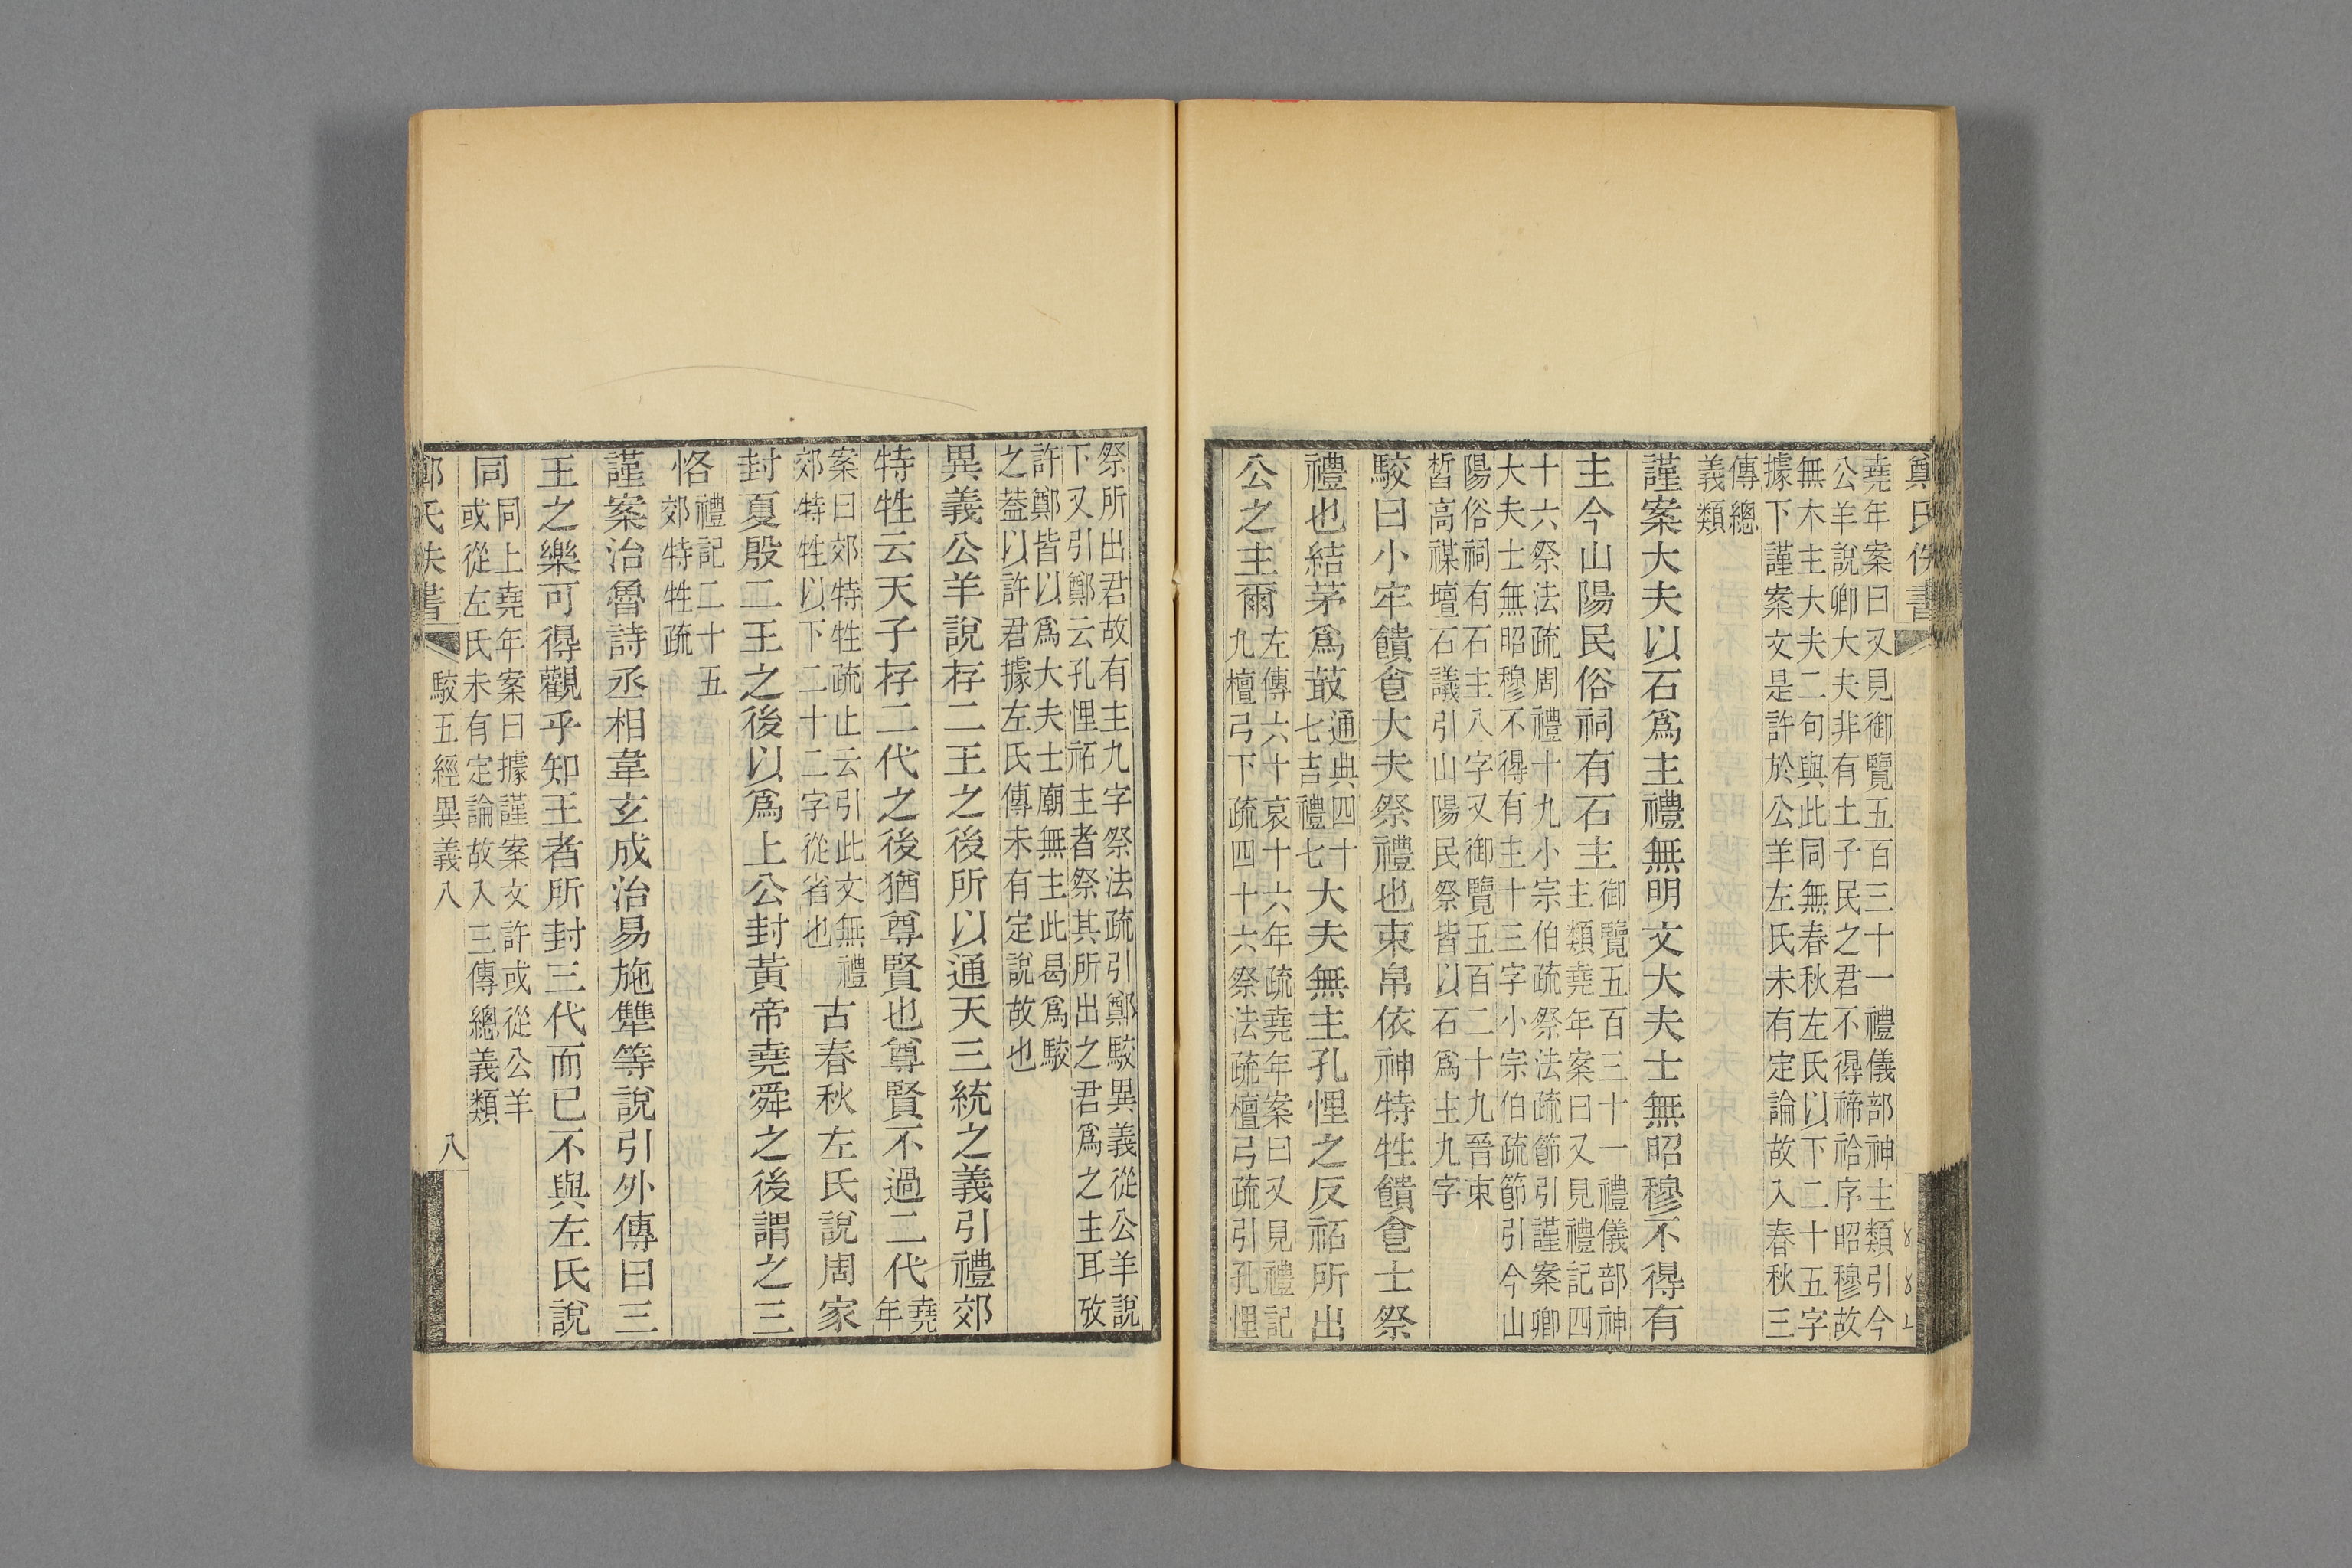 鄭氏佚書
堯年案曰又見御覽五百三十一禮儀部神主類引今
公羊說卿大夫非有土子民之君不得禘祫序昭穆故
無木主大夫二句與此同無春秋左氏以下二十五字
據下謹案文是許於公羊左氏未有定論故入春秋三
傳總
義類
謹案大夫以石爲主禮無明文大夫士無昭穆不得有
主今山陽民俗祠有石主御覽五百三十一禮儀部神
主類堯年案曰又見禮記四
十六祭法疏周禮十九小宗伯疏祭法疏節引謹案卿
大夫士無昭穆不得有主十三字小宗伯疏節引今山
陽俗祠有石主八字又御覽五百二十九晉束
晳高禖壇石議引山陽民祭皆以石爲主九字
駮曰小牢饋食大夫祭禮也束帛依神特牲饋食士祭
禮也結茅爲菆通典四十
七吉禮七大夫無主孔悝之反祏所出
公之主爾左傳六十哀十六年疏堯年案曰又見禮記
九檀弓下疏四十六祭法疏檀弓疏引孔悝
祭所出君故有主九字祭法疏引鄭駮異義從公羊說
下又引鄭云孔悝祏主者祭其所出之君爲之主耳攷
許鄭皆以爲大夫士廟無主此曷爲駮
之葢以許君據左氏傳未有定說故也
異義公羊說存二王之後所以通天三統之義引禮郊
特牲云天子存二代之後猶尊賢也尊賢不過二代堯
年
案曰郊特牲疏止云引此文無禮
郊特牲以下二十二字從省也古春秋左氏說周家
封夏殷二王之後以爲上公封黃帝堯舜之後謂之三
恪禮記二十五
郊特牲疏
謹案治魯詩丞相韋玄成治易施犨等說引外傳曰三
王之樂可得觀乎知王者所封三代而已不與左氏說
同同上堯年案曰據謹案文許或從公羊
或從左氏未有定論故入三傳總義類
氏佚書 駮五經異義八 八